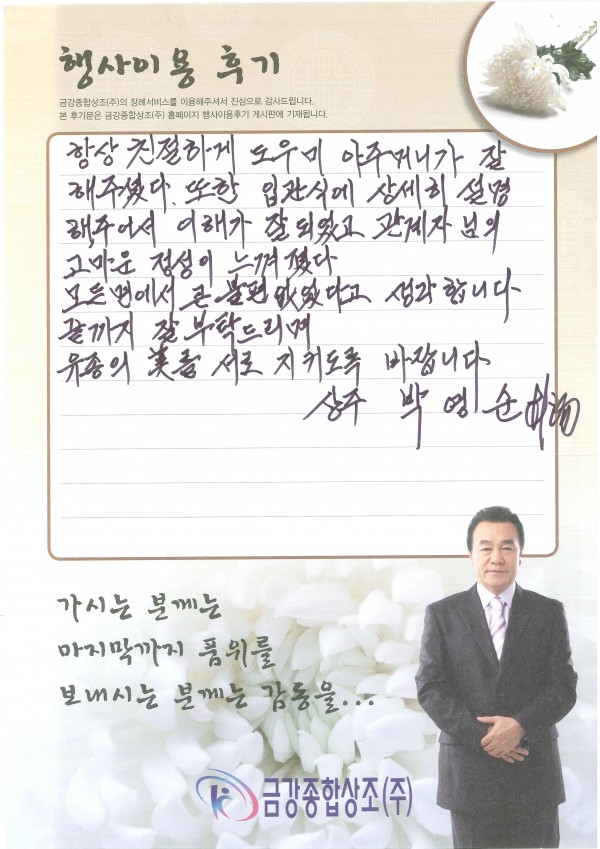 행사이용 후기
금강종합상조(주)의 장례서비스를 이용해주셔서 진심으로 감사드립니다.
본 후기문은 금강종합상조(주) 홈페이지 행사이용후기 게시판에 기재됩니다.
항상 친절하게 도우미 아주머니가 잘
해주셨다. 또한 입관식에 상세히 설명
해주어서 이해가 잘 되었고 관계자 님의
고마운 정성이 느껴졌다
모든면에서 큰 불편 없었다고 생각합니다
끝까지 잘 부탁드리며
유종의 美를 서로 지키도록 바랍니다
상주 박영순
가시는 분께는
마지막까지 품위를
보내시는 분께는 감동을...
금강종합상조(주)